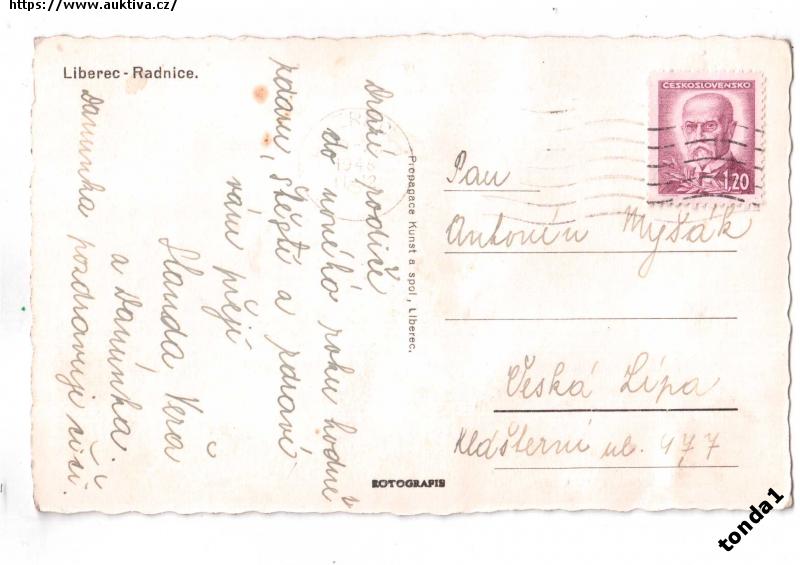 https://www.auktiva.cz/
Liberec - Radnice.
Drazí rodiče
do nového roku hodně
zdaru, štěstí a zdraví
vám přejí
Standa Věra
a Danunka.
Danunka pozdravuje
Propagace Kunst a spol, Liberec.
ROTOGRAFIE
ČESKOSLOVENSKO
1,20
Pan
Antonín Myšák
Česká Lípa
Klášterní ul. 477
tonda1